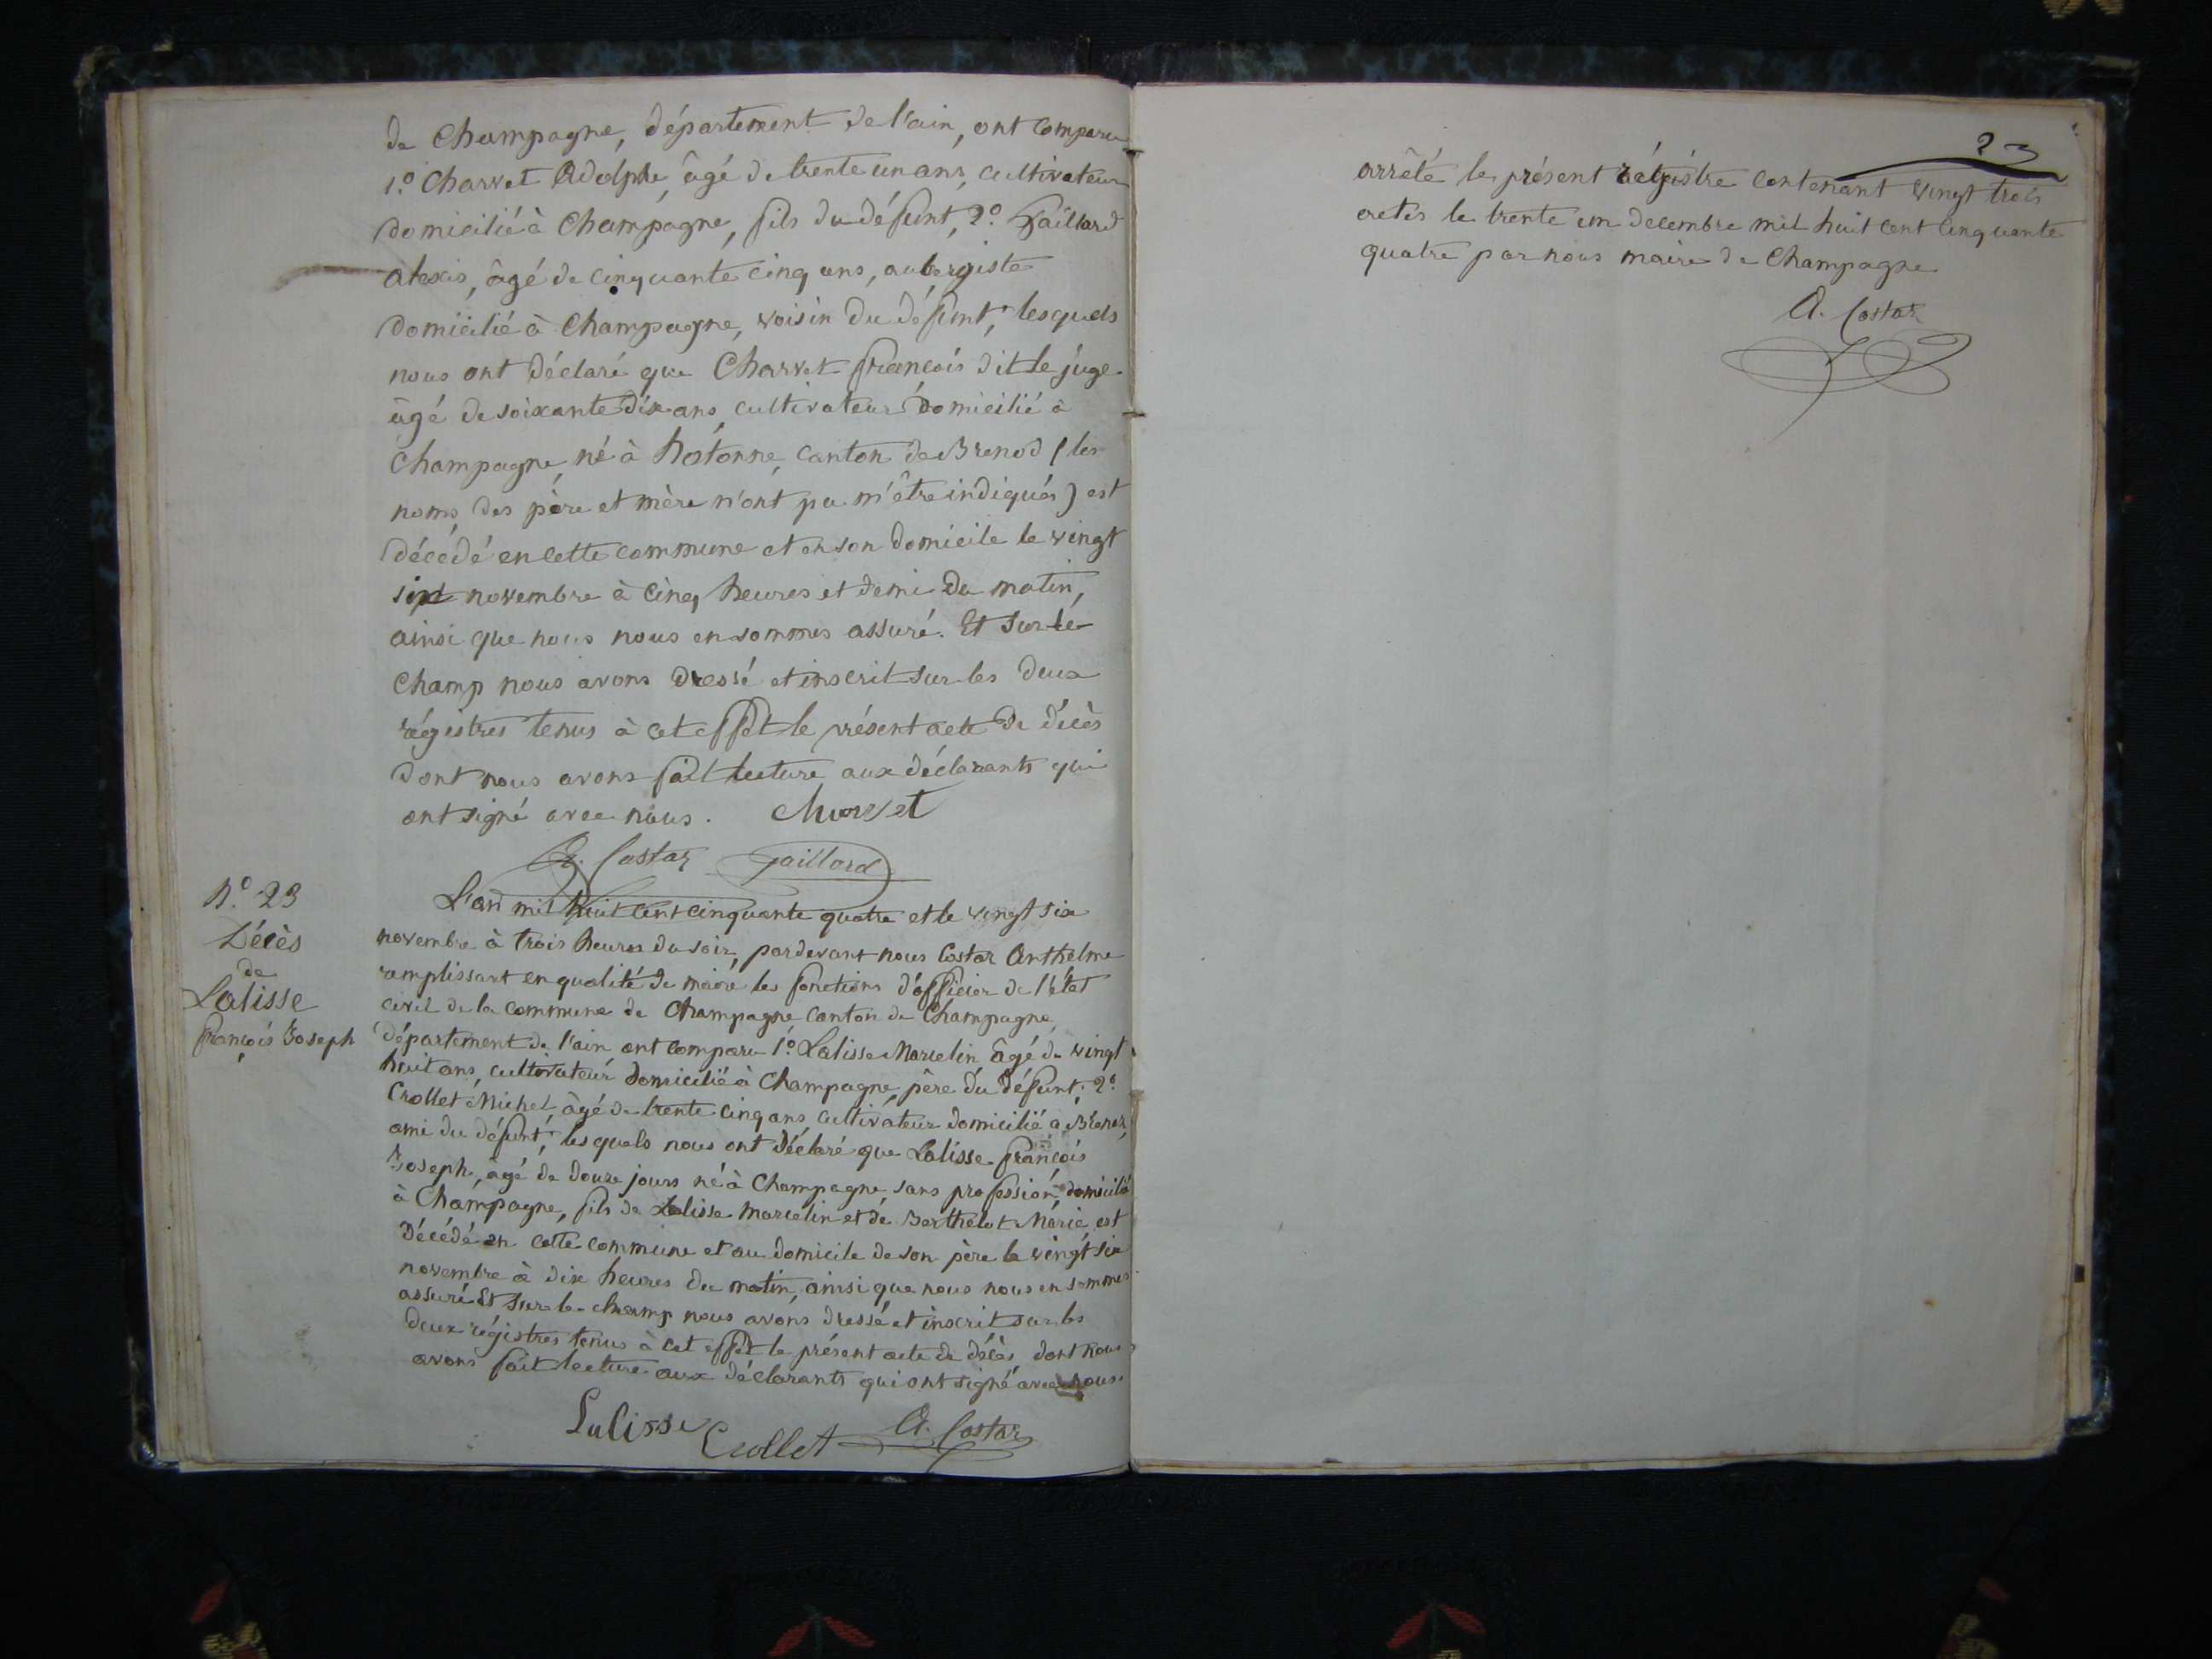 de Champagne, département de l'ain, ont comparu
1.o Charvet Adolphe, âgé de trente un ans, cultivateur
domicilié à Champagne, fils du défunt, 2.o Gaillard
alexis, âgé de cinquante cinq ans, aubergiste
domicilié à Champagne, voisin du défunt, lesquels
nous ont déclaré que Charvet françois dit le juge
âgé de soixante dix ans, cultivateur domicilié à
Champagne, né à hotonne, canton de Brenod (les
noms des père et mère n'ont pu m'être indiqués) est
décédé en cette commune et en son domicile le vingt
six novembre à cinq heures et demi du matin,
ainsi que nous nous en sommes assuré. Et sur le
champ nous avons dressé et inscrit sur les deux
régistres tenus à cet effet le présent acte de décès
dont nous avons fait lecture aux déclarants qui
ont signé avec nous. Charvet
A. Costaz Gaillard
N.o 23
Décès
de
Lalisse
françois Joseph
L'an mil huit cent cinquante quatre et le vingt six
novembre à trois heures du soir, pardevant nous Costaz Anthelme
remplissant en qualité de maire les fonctions d'officier de l'état
civil de la commune de Champagne canton de Champagne,
département de l'ain ont comparu 1.o Lalisse Marcelin âgé de vingt
huit ans, cultivateur domicilié à Champagne, père du défunt, 2.o
Crollet Michel, âgé de trente cinq ans, cultivateur domicilié à Brenaz,
ami du défunt, lesquels nous ont déclaré que Lalisse françois
Joseph, âgé de douze jours né à Champagne, sans profession, domicilié
à Champagne, fils de Lalisse Marcelin et de Berthelot Marie, est
décédé en cette commune et au domicile de son père le vingt six
novembre à dix heures du matin, ainsi que nous nous en sommes
assuré Et sur le champ nous avons dressé et inscrit sur les
deux régistres tenus à cet effet le présent acte de décès, dont nous
avons fait lecture aux déclarants qui ont signé avec nous.
Lalisse Crollet A. Costaz
23
arrêté le présent régistre contenant vingt trois
actes le trente un decembre mil huit cent cinquante
quatre par nous maire de Champagne
A. Costaz